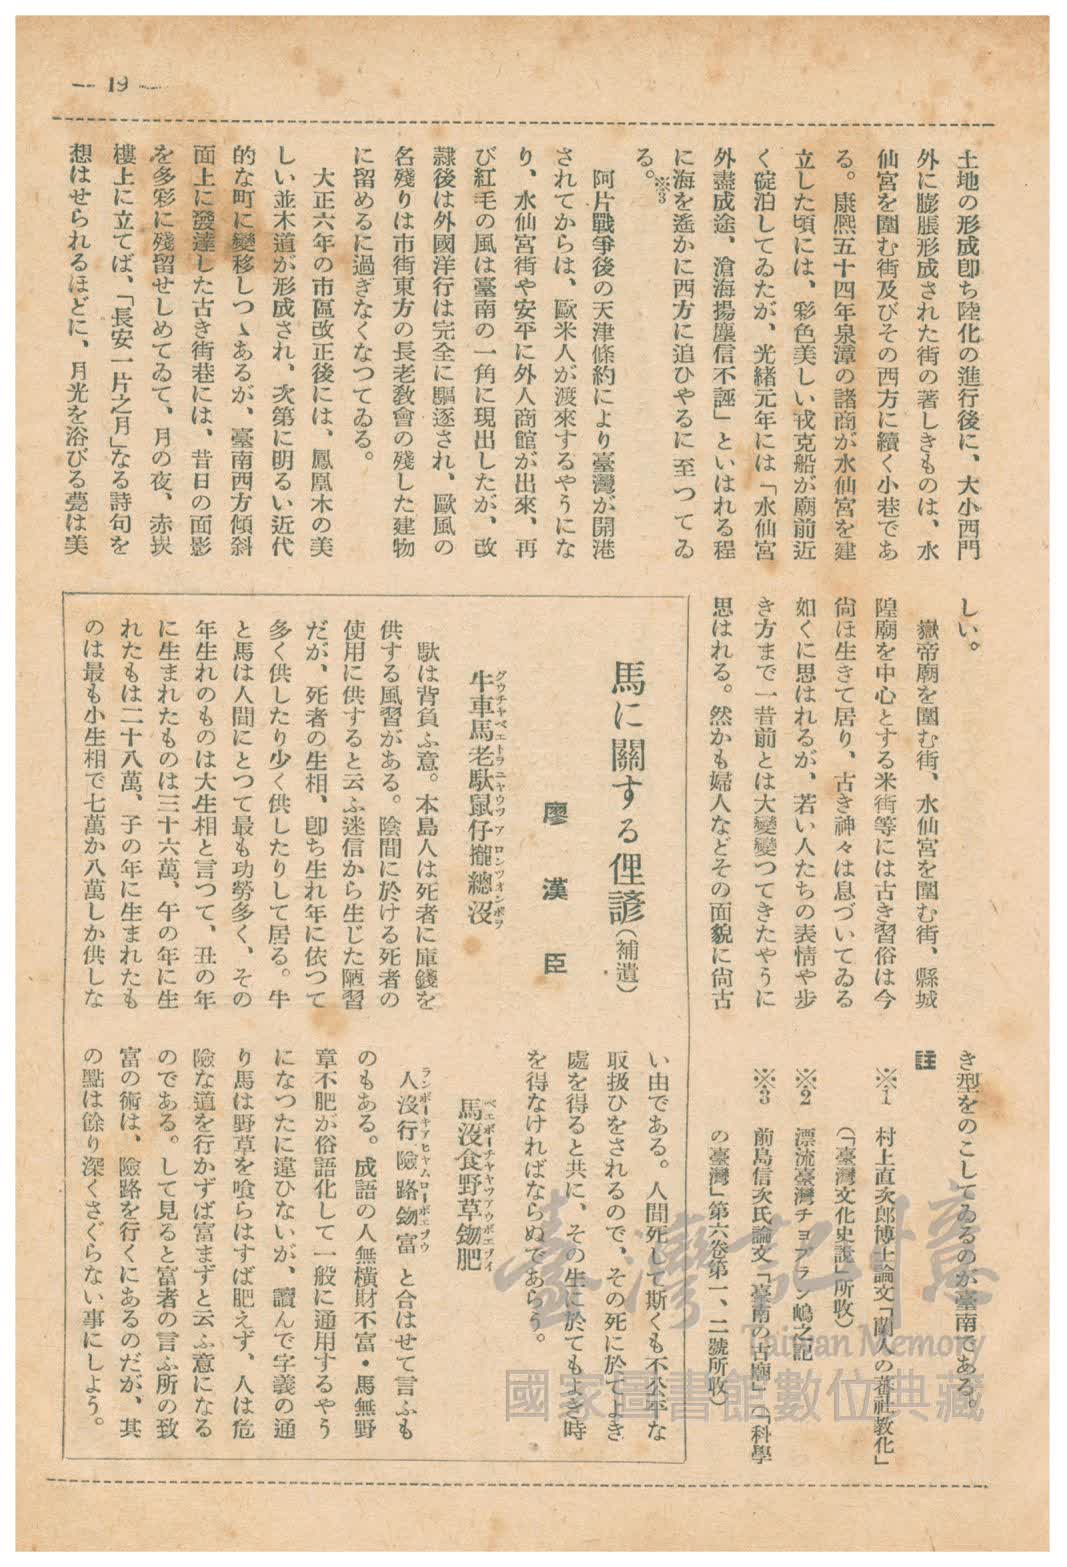 — 19 —
土地の形成卽ち陸化の進行後に、大小西門
外に膨脹形成された街の著しきものは、水
仙宮を圍む街及びその西方に續く小巷であ
る。康熙五十四年泉漳の諸商が水仙宮を建
立した頃には、彩色美しい戎克船が廟前近
く碇泊してゐたが、光緒元年には「水仙宮
外盡成途、滄海揚塵信不誣」といはれる程
に海を遙かに西方に追ひやるに至つてゐ
る。※3
阿片戰爭後の天津條約により臺灣が開港
されてからは、歐米人が渡來するやうにな
り、水仙宮街や安平に外人商館が出來、再
び紅毛の風は臺南の一角に現出したが、改
隷後は外國洋行は完全に驅逐され、歐風の
名殘りは市街東方の長老敎會の殘した建物
に留めるに過ぎなくなつてゐる。
大正六年の市區改正後には、鳳凰木の美
しい並木道が形成され、次第に明るい近代
的な町に變移しつゝあるが、臺南西方傾斜
面上に發達した古き街巷には、昔日の面影
を多彩に殘留せしめてゐて、月の夜、赤崁
樓上に立てば、「長安一片之月」なる詩句を
想はせられるほどに、月光を浴びる甍は美
しい。
嶽帝廟を圍む街、水仙宮を圍む街、縣城
隍廟を中心とする米街等には古き習俗は今
尙ほ生きて居り、古き神々は息づいてゐる
如くに思はれるが、若い人たちの表情や步
き方まで一昔前とは大變變つてきたやうに
思はれる。然かも婦人などその面貌に尙古
き型をのこしてゐるのが臺南である。
註
※1 村上直次郎博士論文「蘭人の蕃社敎化」
（「臺灣文化史說」所收）
※2 漂流臺灣チョプラン嶋之記
※3 前島信次氏論文「臺南の古廟」（「科學
の臺灣」第六卷第一、二號所收）
馬に關する俚諺（補遺）
廖漢臣
牛車馬老馱鼠仔攏總沒
グウチャベエトヲニャウツァロンツオンボヲ
馱は背負ふ意。本島人は死者に庫錢を
供する風習がある。陰間に於ける死者の
使用に供すると云ふ迷信から生じた陋習
だが、死者の生相、卽ち生れ年に依つて
多く供したり少く供したりして居る。牛
と馬は人間にとつて最も功勞多く、その
年生れのものは大生相と言つて、丑の年
に生まれたものは三十六萬、午の年に生
れたもは二十八萬、子の年に生まれたも
のは最も小生相で七萬か八萬しか供しな
い由である。人間死して斯くも不公平な
取扱ひをされるので、その死に於てよき
處を得ると共に、その生に於てもよき時
を得なければならぬであらう。
馬沒食野草𠢕肥
ベエボーチャヤツァウボエプイ
人沒行險路𠢕富 と合はせて言ふも
ランボーキアヒヤムローボエプウ
のもある。成語の人無橫財不富・馬無野
章不肥が俗語化して一般に通用するやう
になつたに違ひないが、讀んで字義の通
り馬は野草を喰らはすば肥えず、人は危
險な道を行かずば富まずと云ふ意になる
のである。して見ると富者の言ふ所の致
富の術は、險路を行くにあるのだが、其
の點は餘り深くさぐらない事にしよう。
臺灣記憶
Taiwan Memory
國家圖書館數位典藏